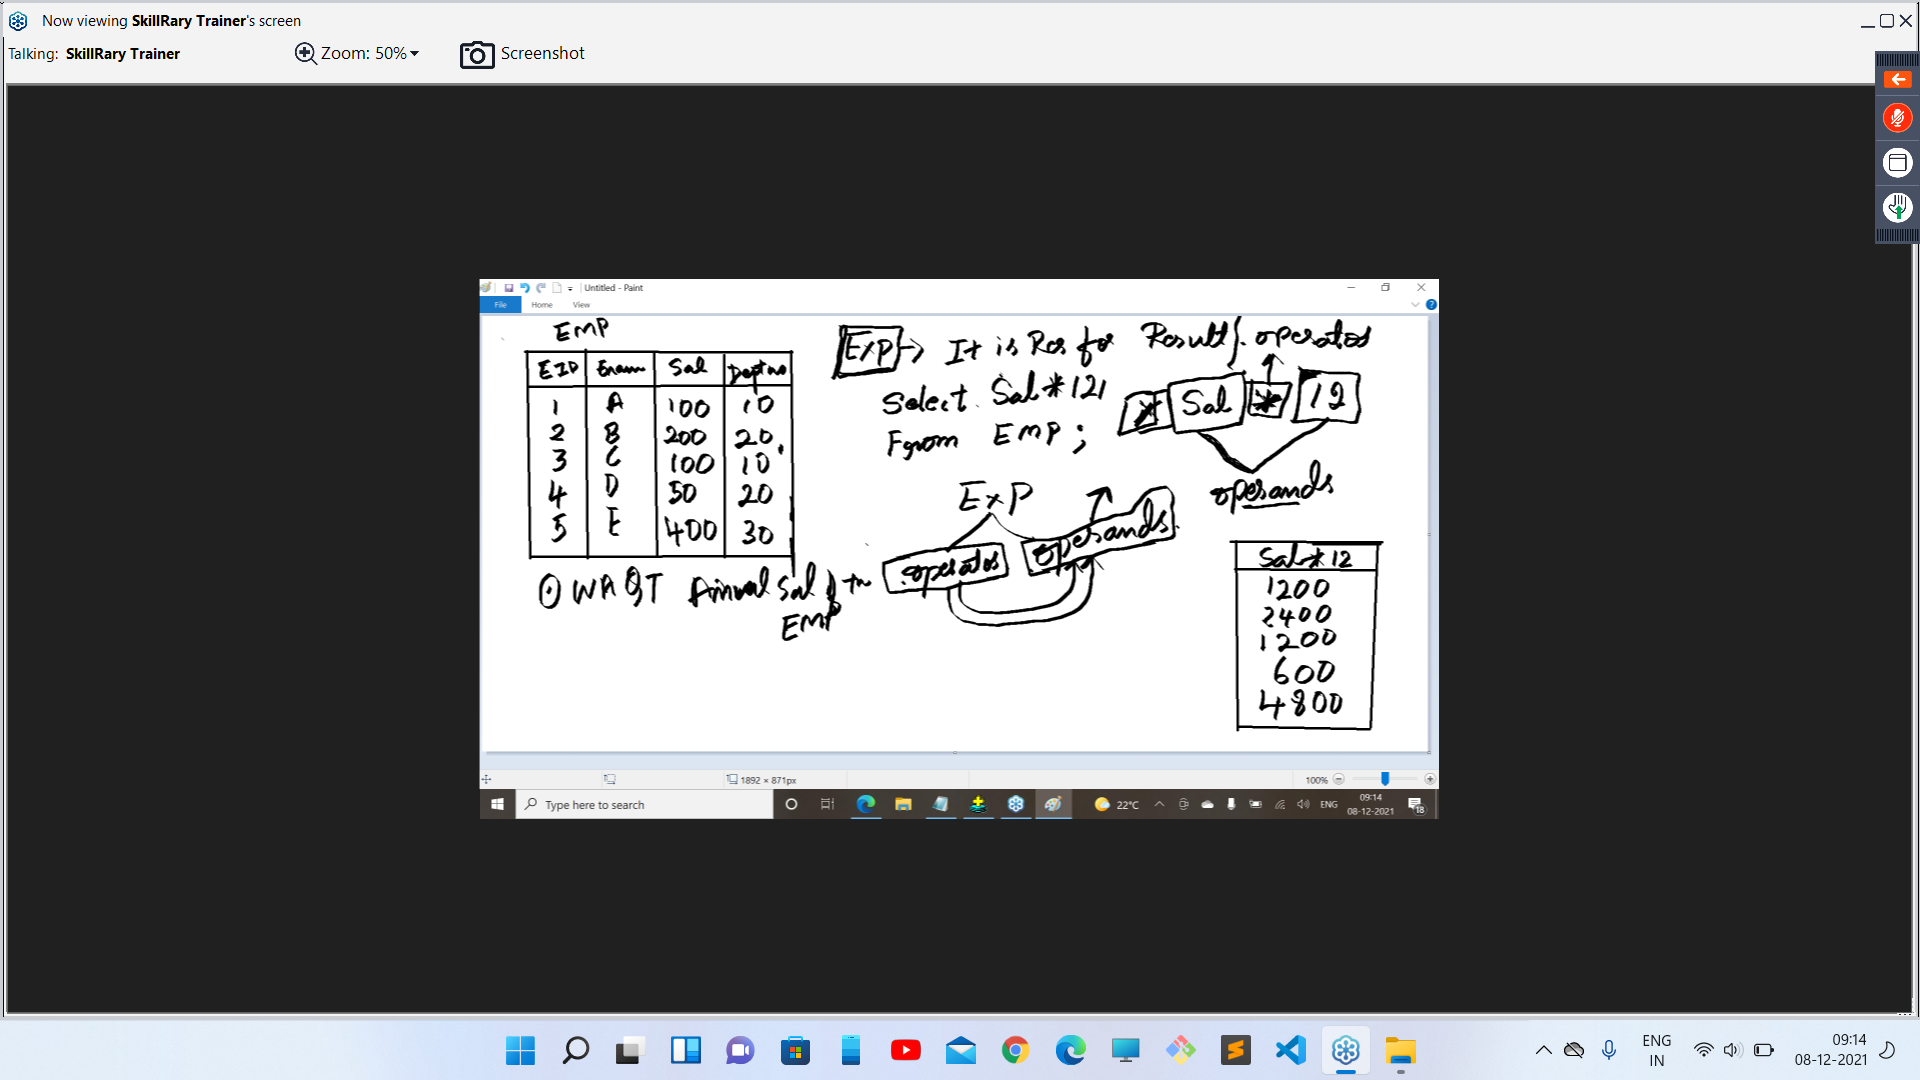 Now viewing SkillRary Trainer's screen
Talking: SkillRary Trainer
Zoom: 50%
Screenshot
Untitled - Paint
File Home View
EMP
EID Enam Sal Deptno
1 A 100 10
2 B 200 20
3 C 100 10
4 D 50 20
5 E 400 30
① WAQT Annual Sal of the
EMP
EXP → It is Res for Result
Select Sal*12
From EMP ;
operator
* Sal * 12
operands
EXP
operator operands
Sal*12
1200
2400
1200
600
4800
1892 × 871px
100%
Type here to search
22°C
ENG
09:14
08-12-2021
18
ENG
IN
09:14
08-12-2021